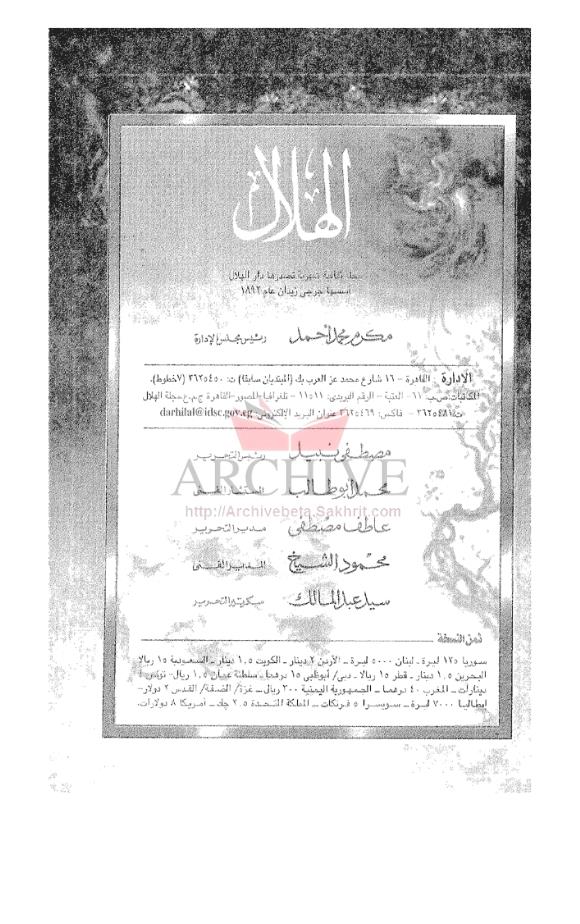 الهلال
مجلة ثقافية شهرية تصدرها دار الهلال
أسسها جرجى زيدان عام ١٨٩٢
مكرم محمد أحمد رئيس مجلس الإدارة
الادارة القاهرة - ١٦ شارع محمد عز العرب بك (المبتديان سابقا) ت: ٣٦٢٥٤٥٠ (٧ خطوط).
المكاتبات: ص.ب: ٦١ - العتبة - الرقم البريدى: ١١٥١١ - تلغرافيا - المصور - القاهرة ج.م.ع مجلة الهلال
ت: ٣٦٢٥٤٨١ - فاكس: ٣٦٢٥٤٦٩ عنوان البريد الإلكترونى: darhilal@idsc.gov.eg
مصطفى نبيل رئيس التحرير
ARCHIVE
محمد أبو طالب المستشار الفنى
http://Archivebeta.Sakhrit.com
عاطف مصطفى مدير التحرير
محمود الشيخ المدير الفنى
سيد عبد المالك سكرتير التحرير
ثمن النسخة
سوريا ١٢٥ ليرة - لبنان ٥٠٠٠ ليرة - الأردن ٢ دينار - الكويت ١.٥ دينار - السعودية ١٥ ريالا
البحرين ١.٥ دينار - قطر ١٥ ريالا - دبى/ أبوظبى ١٥ درهما - سلطنة عمان ١.٥ ريال - تونس
دينارات - المغرب ٤٠ درهما - الجمهورية اليمنية ٣٠٠ ريال - غزة/ الضفة/ القدس ٢ دولار -
إيطاليا ٧٠٠٠ ليرة - سويسرا ٥ فرنكات - المملكة المتحدة ٢.٥ جك - أمريكا ٨ دولارات.